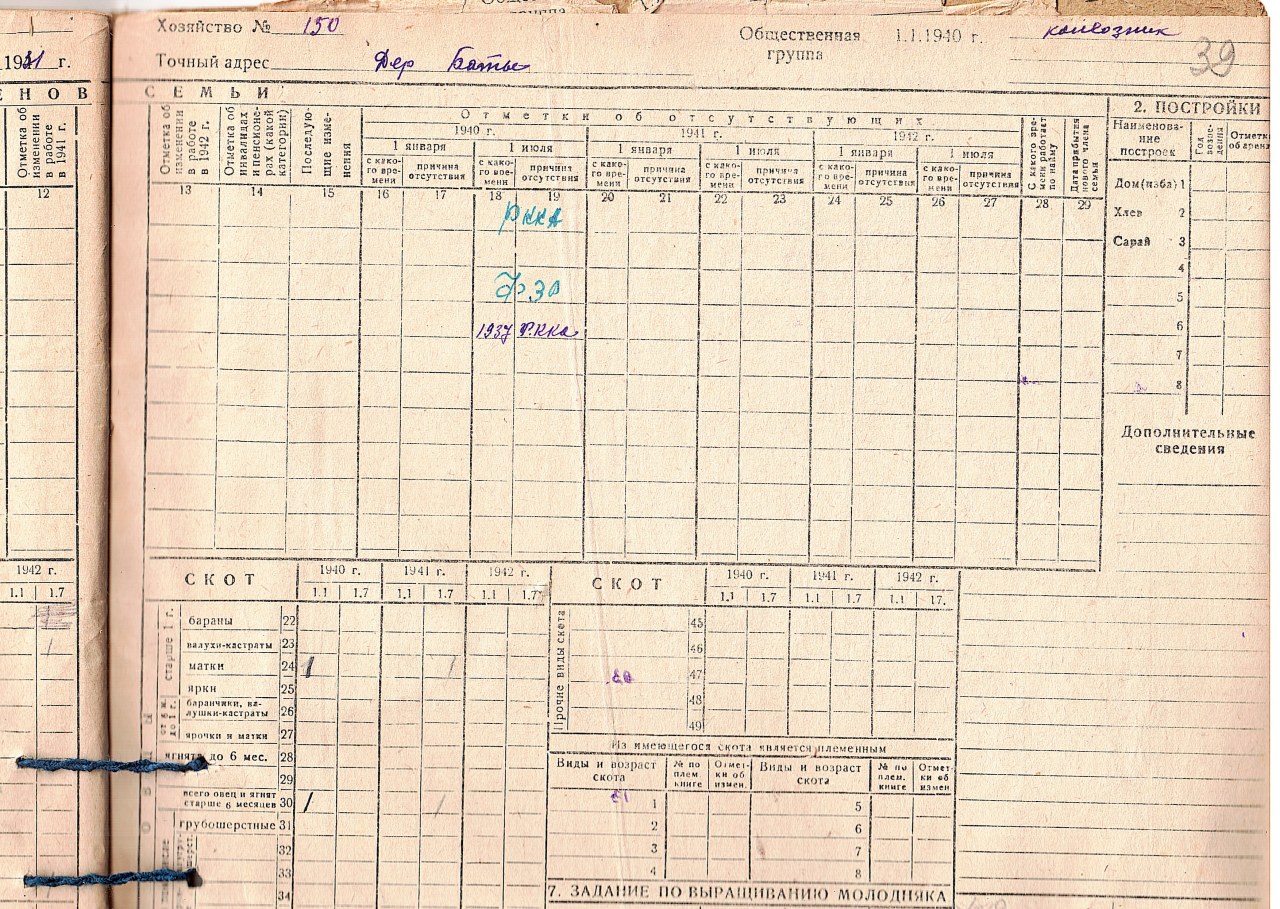 Хозяйство № 150
Общественная группа 1.1.1940 г. колхозник
39
Точный адрес Дер Батье
1941 г.
ЕНОВ СЕМЬИ
2. ПОСТРОЙКИ
Отметка об изменении в работе в 1941 г.
Отметка об изменении в работе в 1942 г.
Отметка об инвалидах и пенсионерах (какой категории)
Последующие изменения
Отметки об отсутствующих
1940 г. 1941 г. 1942 г.
1 января 1 июля 1 января 1 июля 1 января 1 июля
с какого времени причина отсутствия с какого времени причина отсутствия с какого времени причина отсутствия с какого времени причина отсутствия с какого времени причина отсутствия с какого времени причина отсутствия
С какого времени работает по найму
Дата прибытия нового члена семьи
Наименование построек
Год возведения
Отметки об аренд
12 13 14 15 16 17 18 19 20 21 22 23 24 25 26 27 28 29
Дом (изба) 1
Хлев 2
Сарай 3
4
5
6
7
8
РККА
ФЗО
1937 РККА
Дополнительные сведения
1942 г.
1.1 1.7
СКОТ 1940 г. 1941 г. 1942 г.
1.1 1.7 1.1 1.7 1.1 1.7
старше 1 г.
бараны 22
валухи-кастраты 23
матки 24 1 1
ярки 25
от 6 м. до 1 г.
баранчики, валушки-кастраты 26
ярочки и матки 27
ягнята до 6 мес. 28
29
всего овец и ягнят старше 6 месяцев 30 1 1
грубошерстные 31
32
33
34
СКОТ 1940 г. 1941 г. 1942 г.
1.1 1.7 1.1 1.7 1.1 17.
Прочие виды скота
45
46
47
48
49
Из имеющегося скота является племенным
Виды и возраст скота № по плем. книге Отметки об измен. Виды и возраст скота № по плем. книге Отметки об измен.
1 5
2 6
3 7
4 8
7. ЗАДАНИЕ ПО ВЫРАЩИВАНИЮ МОЛОДНЯКА